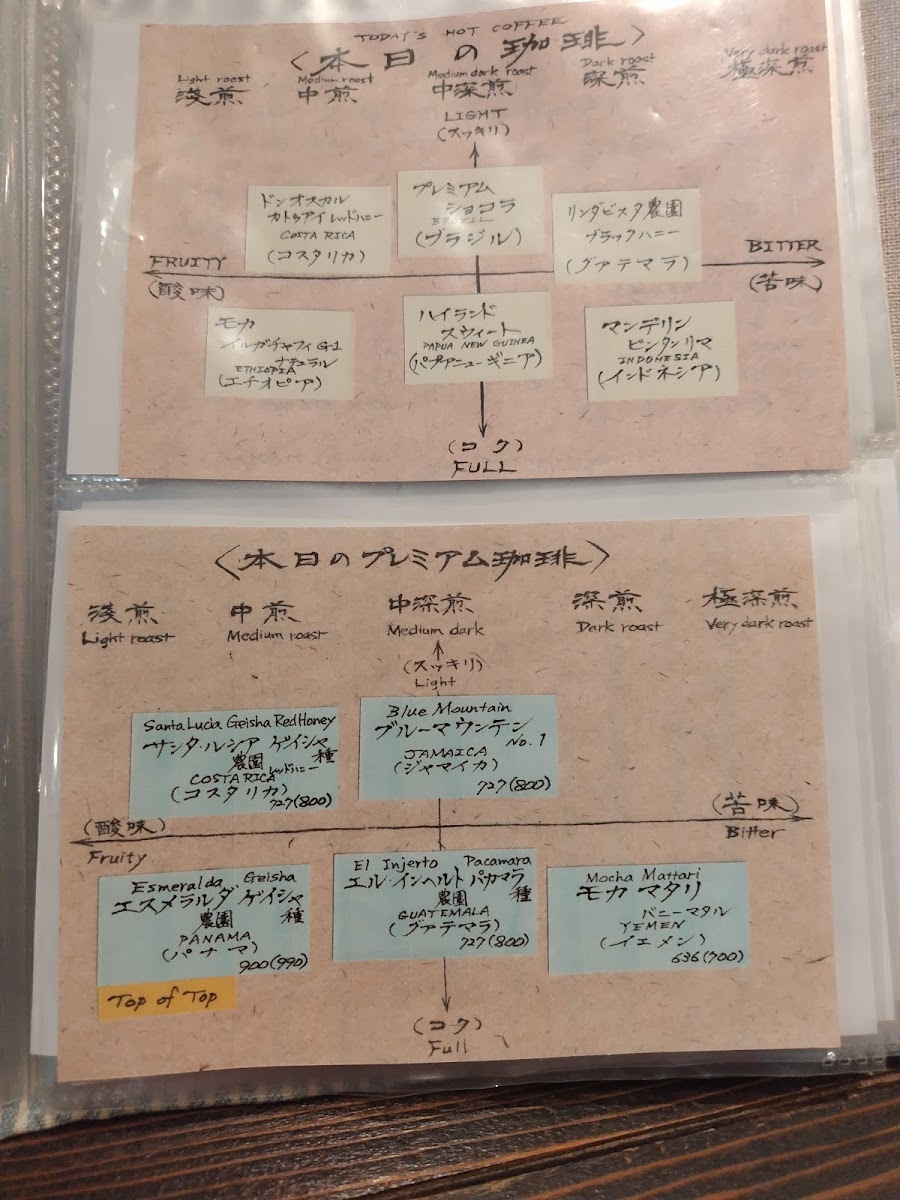 TODAY'S HOT COFFEE
〈本日の珈琲〉
Light roast
浅煎
Medium roast
中煎
Medium dark roast
中深煎
Dark roast
深煎
Very dark roast
極深煎
LIGHT
(スッキリ)
ドンオスカル
カトゥアイ レッドハニー
COSTA RICA
(コスタリカ)
プレミアム
ショコラ
BRAZIL
(ブラジル)
リンダビスタ農園
ブラックハニー
(グァテマラ)
FRUITY
(酸味)
BITTER
(苦味)
モカ
イルガチャフィ G-1
ナチュラル
ETHIOPIA
(エチオピア)
ハイランド
スウィート
PAPUA NEW GUINEA
(パプアニューギニア)
マンデリン
ビンタンリマ
INDONESIA
(インドネシア)
(コク)
FULL
〈本日のプレミアム珈琲〉
浅煎
Light roast
中煎
Medium roast
中深煎
Medium dark
深煎
Dark roast
極深煎
Very dark roast
(スッキリ)
Light
Santa Lucia Geisha Red Honey
サンタ・ルシア ゲイシャ
農園 種
COSTA RICA レッドハニー
(コスタリカ)
727(800)
Blue Mountain
ブルーマウンテン
No.1
JAMAICA
(ジャマイカ)
727(800)
(酸味)
Fruity
(苦味)
Bitter
Esmeralda Geisha
エスメラルダ ゲイシャ
農園 種
PANAMA
(パナマ)
900(990)
Top of Top
El Injerto Pacamara
エル・インヘルト パカマラ
農園 種
GUATEMALA
(グァテマラ)
727(800)
Mocha Mattari
モカ マタリ
バニーマタル
YEMEN
(イエメン)
636(700)
(コク)
Full